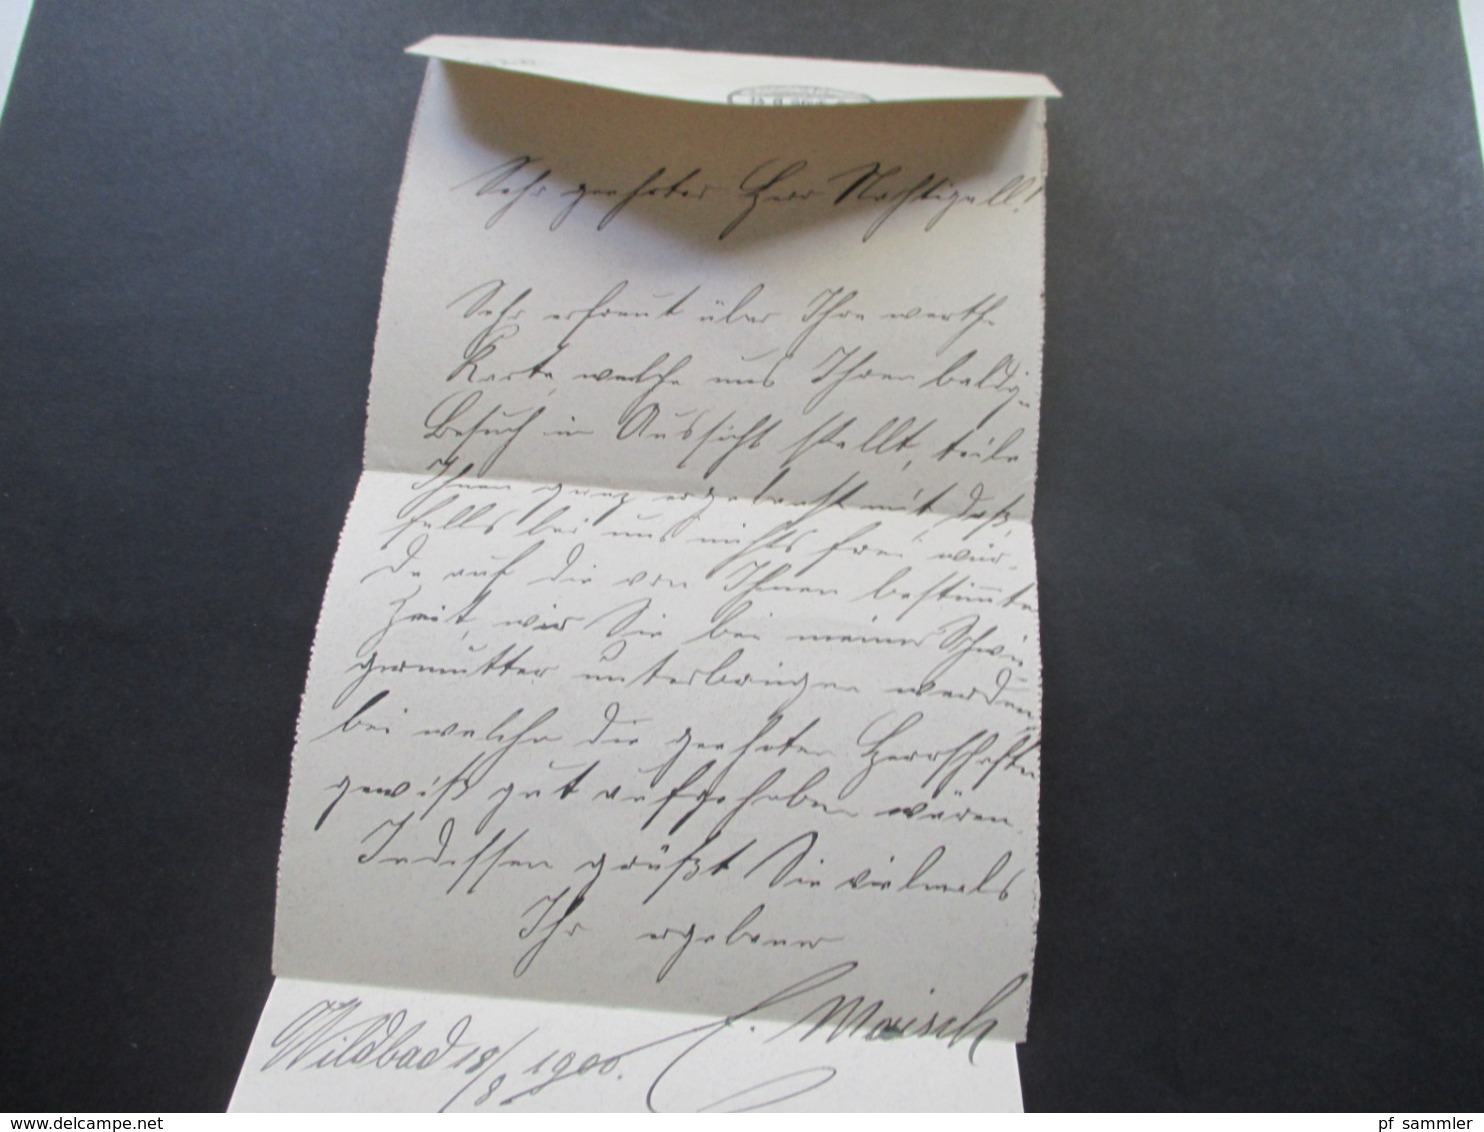 Sehr geehrter Herr Nachtigall!
Sehr erfreut über Ihre werthe
Karte, welche uns Ihren baldigen
Besuch in Aussicht stellt, teile
Ihnen ganz ergebenst mit, daß,
falls bei uns nichts frei wür-
de auf die von Ihnen bestimmte
Zeit, wir Sie bei meiner Schwie-
germutter unterbringen werden,
bei welcher die geehrten Herrschaften
gewiß gut aufgehoben wären.
Indessen grüßt Sie vielmals
Ihr ergebener
E. Maisch
Wildbad 18/8 1900.
pf_sammler